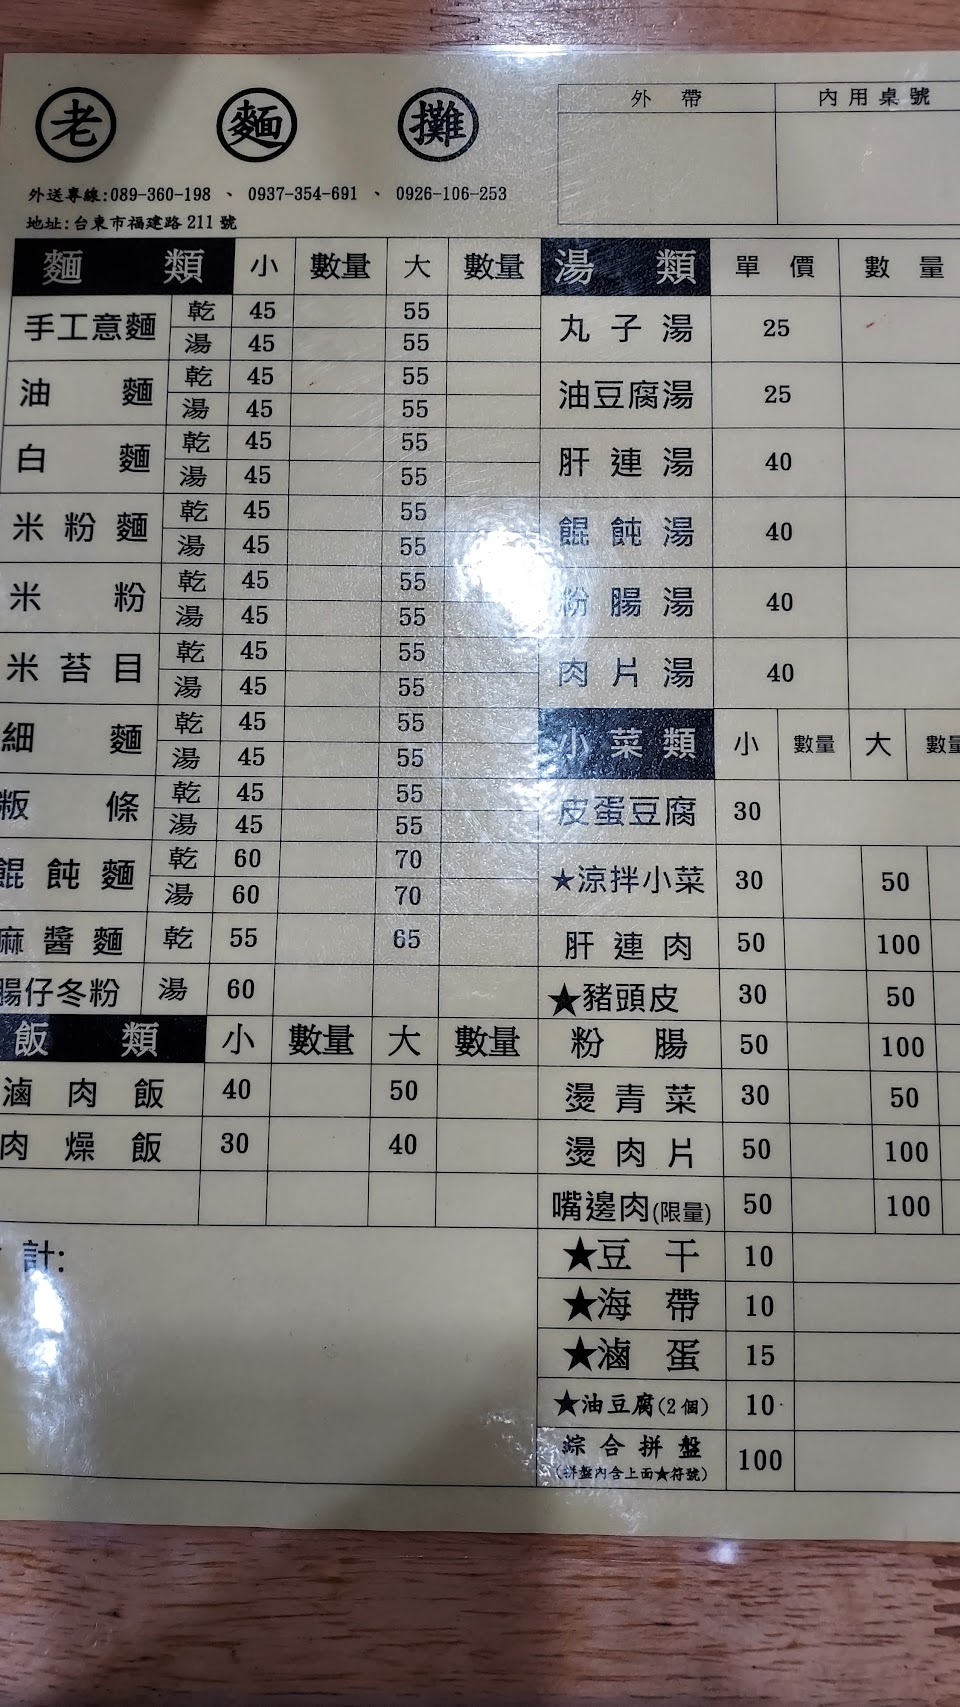 老 麵 攤
外送專線:089-360-198 、 0937-354-691 、 0926-106-253
地址:台東市福建路 211 號
外 帶 內用桌號
麵 類 小 數量 大 數量
手工意麵 乾 45 55
湯 45 55
油 麵 乾 45 55
湯 45 55
白 麵 乾 45 55
湯 45 55
米 粉 麵 乾 45 55
湯 45 55
米 粉 乾 45 55
湯 45 55
米 苔 目 乾 45 55
湯 45 55
細 麵 乾 45 55
湯 45 55
粄 條 乾 45 55
湯 45 55
餛 飩 麵 乾 60 70
湯 60 70
麻 醬 麵 乾 55 65
腸仔冬粉 湯 60
飯 類 小 數量 大 數量
滷 肉 飯 40 50
肉 燥 飯 30 40
計:
湯 類 單 價 數 量
丸 子 湯 25
油豆腐湯 25
肝 連 湯 40
餛 飩 湯 40
粉 腸 湯 40
肉 片 湯 40
小 菜 類 小 數量 大 數量
皮蛋豆腐 30
★涼拌小菜 30 50
肝 連 肉 50 100
★豬頭皮 30 50
粉 腸 50 100
燙 青 菜 30 50
燙 肉 片 50 100
嘴邊肉(限量) 50 100
★豆 干 10
★海 帶 10
★滷 蛋 15
★油豆腐(2個) 10
綜 合 拼 盤 100
(拼盤內含上面★符號)